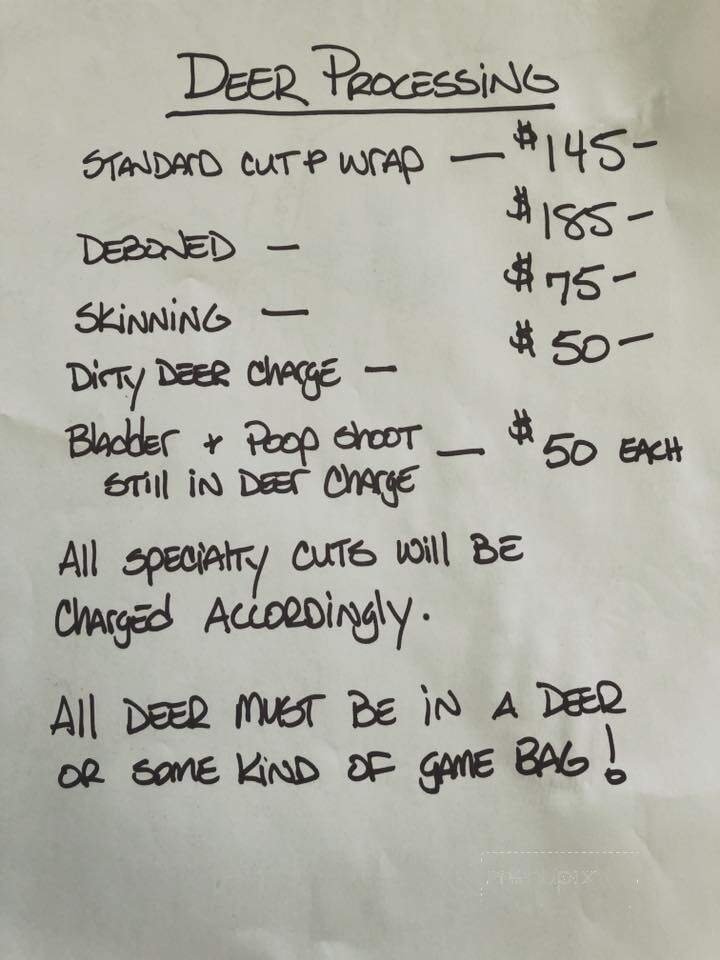 DEER PROCESSING
STANDARD CUT & WRAP — $145-
DEBONED — $185-
SKINNING — $75-
DIRTY DEER CHARGE — $50-
Bladder + Poop shoot — $50 EACH
STILL IN DEER CHARGE
All SPECIALTY CUTS Will BE
CHARGED ACCORDINGLY.
All DEER MUST BE IN A DEER
OR SOME KIND OF GAME BAG!